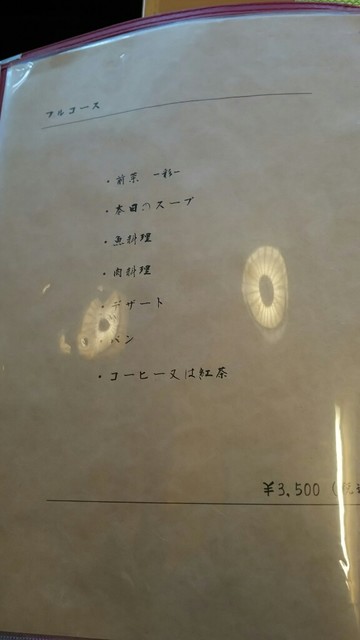 フルコース
・前菜 一彩一
・本日のスープ
・魚料理
・肉料理
・デザート
・パン
・コーヒー又は紅茶
¥3,500 (税